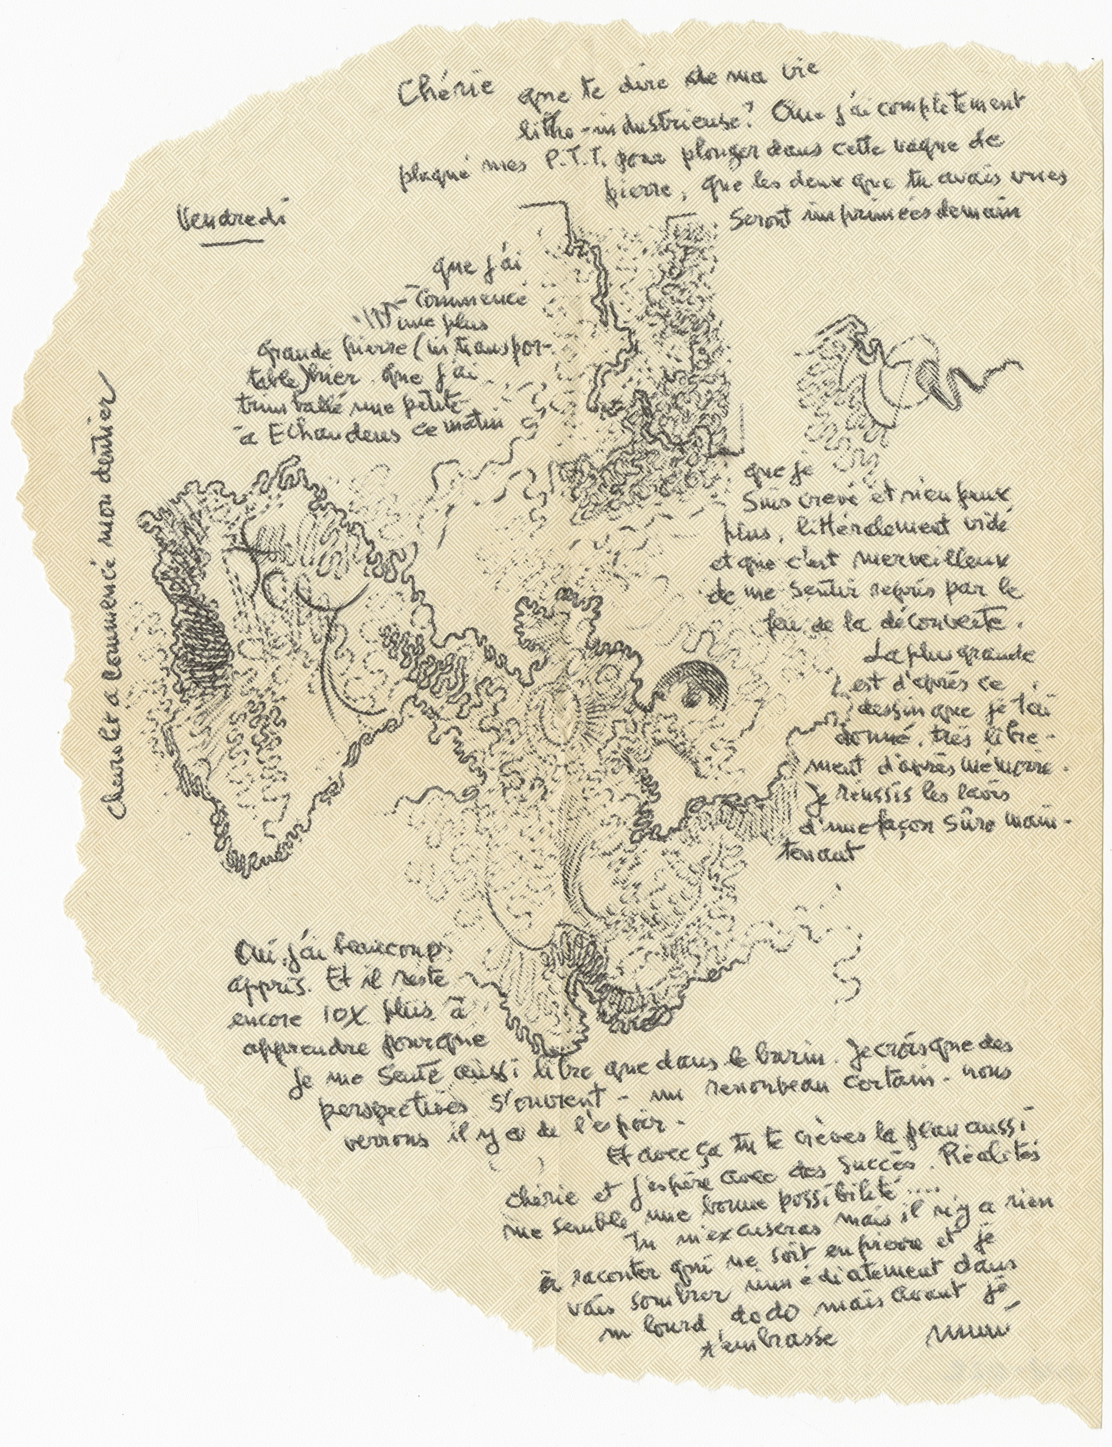 Chérie que te dire de ma vie
litho-industrieuse? Que j'ai complètement
plaqué mes P.T.T. pour plonger dans cette vague de
pierre, que les deux que tu avais vues
seront imprimées demain
Vendredi
que j'ai
commencé
une plus
grande pierre (intranspor-
table) hier. que j'ai
trimballé une petite
à Echandens ce matin
que je
suis crevé et n'en peux
plus, littéralement vidé
et que c'est merveilleux
de me sentir repris par le
feu de la découverte.
La plus grande
est d'après ce
dessin que je t'ai
donné, très libre-
ment d'après mémoire.
Je réussis les lavis
d'une façon sûre main-
tenant
Chevrolet a commencé mon dentier
Oui j'ai beaucoup
appris. Et il reste
encore 10X plus à
apprendre pour que
je me sente aussi libre que dans le burin. Je crois que des
perspectives s'ouvrent - un renouveau certain. nous
verrons il y a de l'espoir.
Et avec ça tu te crèves la peau aussi
chérie et j'espère avec des succès. Réalités
me semble une bonne possibilité....
Tu m'excuseras mais il n'y a rien
à raconter qui ne soit en pierre et je
vais sombrer immédiatement dans
un lourd dodo mais avant je
t'embrasse